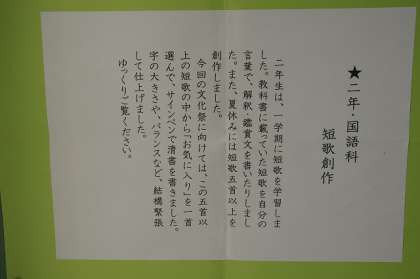 ★二年・国語科
短歌創作
二年生は、一学期に短歌を学習しま
した。教科書に載っていた短歌を自分の
言葉で、解釈・鑑賞文を書いたりしまし
た。また、夏休みには短歌五首以上を
創作しました。
今回の文化祭に向けては、この五首以
上の短歌の中から「お気に入り」を一首
選んで、サインペンで清書を書きました。
字の大きさや、バランスなど、結構緊張
して仕上げました。
ゆっくりご覧ください。